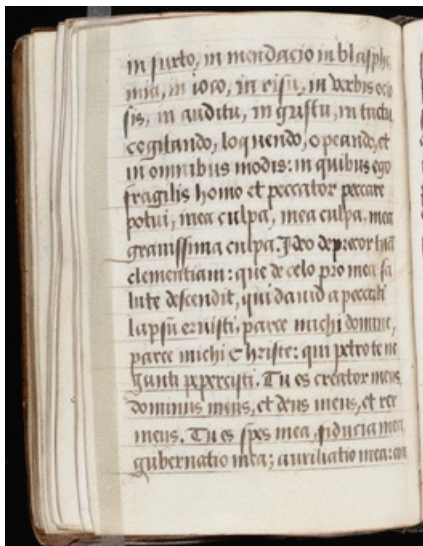 in furto, in mendacio in blasphe
mia, in ioco, in risu, in verbis ocio
sis, in auditu, in gustu, in tactu
cogitando, loquendo, opeando, et
in omnibus modis: in quibus ego
fragilis homo et peccator peccare
potui, mea culpa, mea culpa, mea
grauissima culpa. Ideo deprecor tuā
clementiam: que de celo pro mea sa
lute descendit, qui dauid a peccati
lapsū eruisti, parce michi domine,
parce michi Christe: qui petro te ne
ganti pepercisti. Tu es creator meus
dominus meus, et deus meus, et rex
meus. Tu es spes mea, fiducia mea
gubernatio mea; auxiliatio mea: con